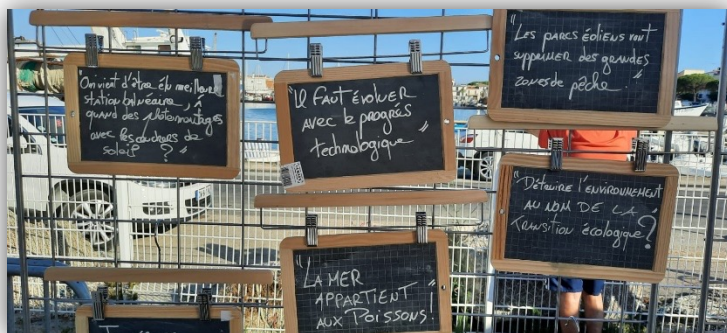 "On vient d'être élu meilleure
station balnéaire, À
quand des photomontages
avec les couchers de
soleil ? "
"Il faut évoluer
avec le progrès
technologique "
"Les parcs éoliens vont
supprimer des grandes
zones de pêche. "
"Détruire l'environnement
au nom de la
transition écologique ?
"La mer
appartient
aux Poissons ! "